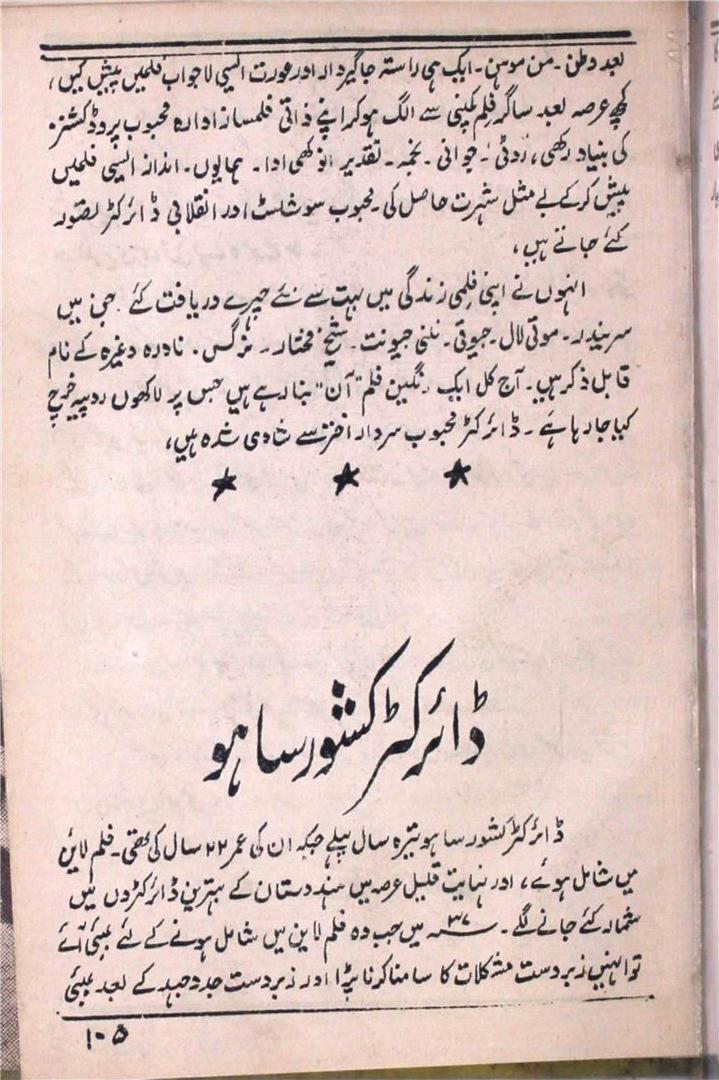 بعد وطن۔ من موہن۔ ایک ہی راستہ جاگیردار اور عورت ایسی لاجواب فلمیں پیش کیں،
کچھ عرصہ بعد ساگر فلم کمپنی سے الگ ہوکر اپنے ذاتی فلمساز ادارہ محبوب پروڈکشنز
کی بنیاد رکھی، روٹی۔ جوانی۔ نجمہ۔ تقدیر انوکھی ادا۔ ہمایوں۔ انداز ایسی فلمیں
پیش کرکے بے مثل شہرت حاصل کی محبوب سوشلسٹ اور انقلابی ڈائرکٹر تصور
کئے جاتے ہیں،
انہوں نے اپنی فلمی زندگی میں بہت سے نئے چہرے دریافت کئے جن میں
سریندر۔ موتی لال۔ جیوتی۔ نلنی جیونت۔ شیخ مختار۔ نرگس۔ نادرہ وغیرہ کے نام
قابل ذکر ہیں۔ آج کل ایک رنگین فلم "آن" بنارہے ہیں جس پر لاکھوں روپیہ خرچ
کیا جارہا ہے۔ ڈائرکٹر محبوب سردار اختر سے شادی شدہ ہیں،
ڈائرکٹر کشور ساہو
ڈائرکٹر کشور ساہو تیرہ سال پہلے جبکہ ان کی عمر ۲۲ سال کی تھی۔ فلم لائن
میں شامل ہوئے، اور نہایت قلیل عرصہ میں ہندوستان کے بہترین ڈائرکٹروں میں
شمار کئے جانے لگے۔ ۳۷ء میں جب وہ فلم لاین میں شامل ہونے کے لئے بمبئی آئے
تو انہیں زبردست مشکلات کا سامنا کرنا پڑا اور زبردست جدوجہد کے بعد بمبئی
۱۰۵